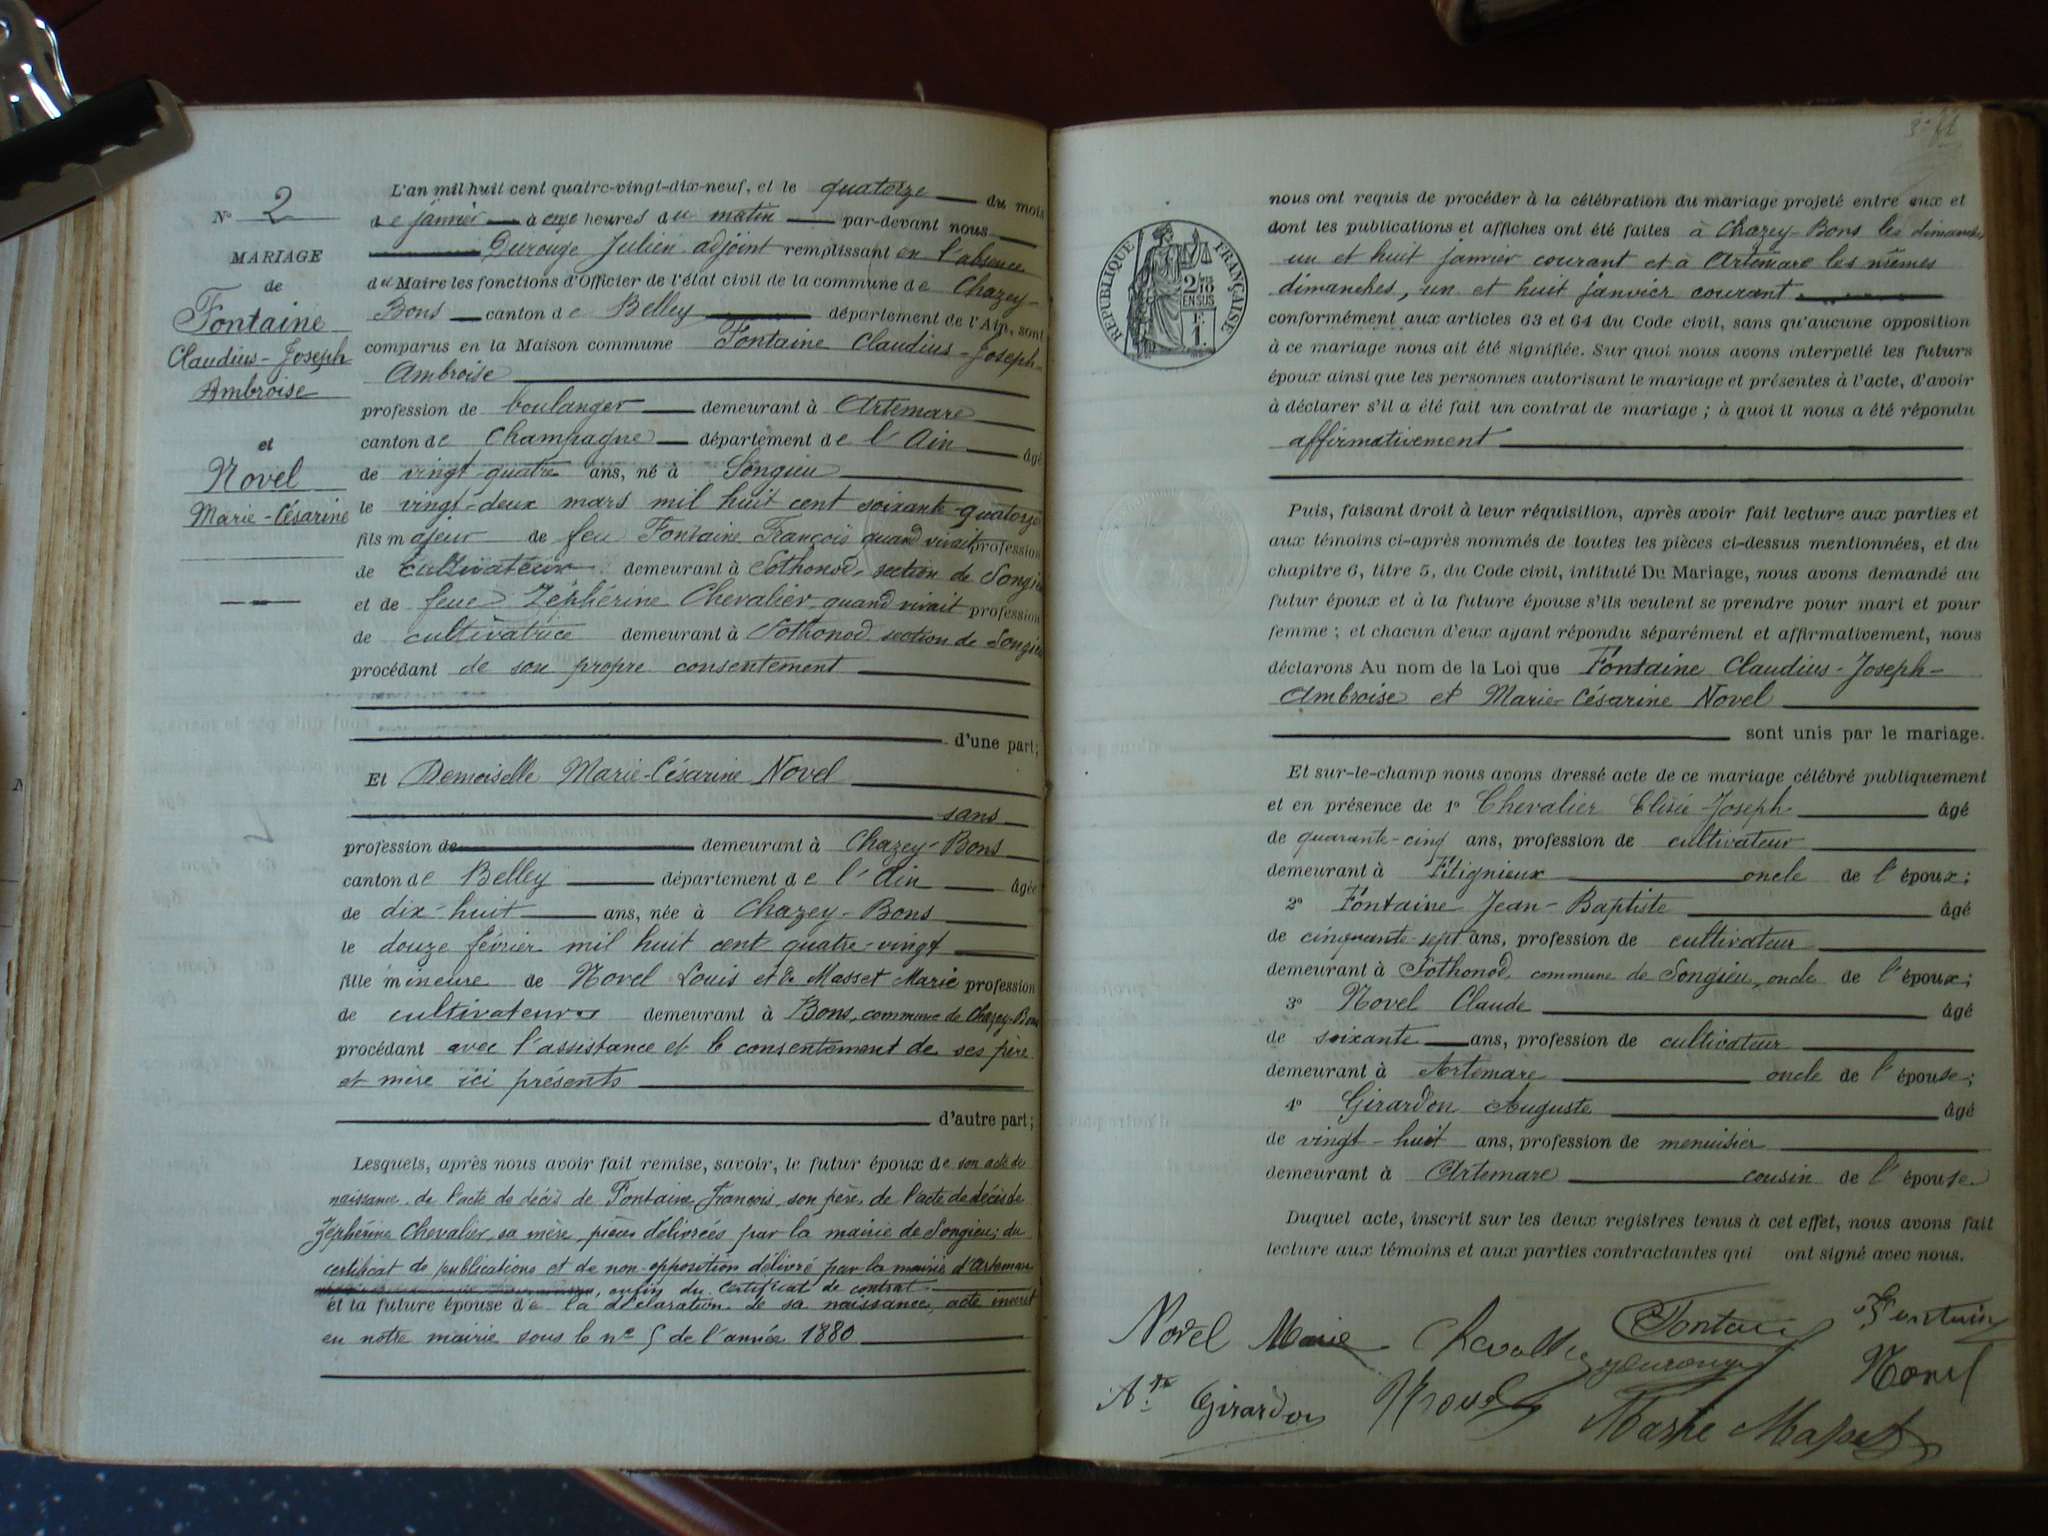 N° 2
MARIAGE
de
Fontaine
Claudius-Joseph
Ambroise
et
Novel
Marie-Césarine
L'an mil huit cent quatre-vingt-dix-neuf, et le quatorze du mois
de janvier à onze heures du matin par-devant nous
Durouge Julien adjoint remplissant en l'absence
du Maire les fonctions d'Officier de l'état civil de la commune de Chazey-
Bons canton de Belley département de l'Ain, sont
comparus en la Maison commune Fontaine Claudius-Joseph-
Ambroise
profession de boulanger demeurant à Artemare
canton de Champagne département de l'Ain âgé
de vingt quatre ans, né à Songieu
le vingt-deux mars mil huit cent soixante-quatorze
fils majeur de feu Fontaine François quand vivait profession
de cultivateur demeurant à Sothonod, section de Songieu
et de feue Zéphérine Chevalier quand vivait profession
de cultivatrice demeurant à Sothonod section de Songieu
procédant de son propre consentement
d'une part;
Et Demoiselle Marie-Césarine Novel
sans
profession de demeurant à Chazey-Bons
canton de Belley département de l'Ain âgée
de dix-huit ans, née à Chazey-Bons
le douze février mil huit cent quatre-vingt
fille mineure de Novel Louis et de Masset Marie profession
de cultivateurs demeurant à Bons, commune de Chazey-Bons
procédant avec l'assistance et le consentement de ses père
et mère ici présents
d'autre part;
Lesquels, après nous avoir fait remise, savoir, le futur époux de son acte de
naissance, de l'acte de décès de Fontaine François, son père, de l'acte de décès de
Zéphérine Chevalier, sa mère, pièces délivrées par la mairie de Songieu; du
certificat de publications et de non-opposition délivré par la mairie d'Artemare
, enfin du certificat de contrat
et la future épouse de la déclaration de sa naissance, acte inscrit
en notre mairie sous le n° 5 de l'année 1880
RÉPUBLIQUE FRANÇAISE
2 /10
EN SUS
F.
1.
nous ont requis de procéder à la célébration du mariage projeté entre eux et
dont les publications et affiches ont été faites à Chazey-Bons les dimanches
un et huit janvier courant et à Artemare les mêmes
dimanches, un et huit janvier courant
conformément aux articles 63 et 64 du Code civil, sans qu'aucune opposition
à ce mariage nous ait été signifiée. Sur quoi nous avons interpellé les futurs
époux ainsi que les personnes autorisant le mariage et présentes à l'acte, d'avoir
à déclarer s'il a été fait un contrat de mariage; à quoi il nous a été répondu
affirmativement
Puis, faisant droit à leur réquisition, après avoir fait lecture aux parties et
aux témoins ci-après nommés de toutes les pièces ci-dessus mentionnées, et du
chapitre 6, titre 5, du Code civil, intitulé Du Mariage, nous avons demandé au
futur époux et à la future épouse s'ils veulent se prendre pour mari et pour
femme; et chacun d'eux ayant répondu séparément et affirmativement, nous
déclarons Au nom de la Loi que Fontaine Claudius-Joseph-
Ambroise et Marie-Césarine Novel
sont unis par le mariage.
Et sur-le-champ nous avons dressé acte de ce mariage célébré publiquement
et en présence de 1° Chevalier Elisée Joseph âgé
de quarante-cinq ans, profession de cultivateur
demeurant à Fitignieux oncle de l'époux;
2° Fontaine Jean-Baptiste âgé
de cinquante-sept ans, profession de cultivateur
demeurant à Sothonod, commune de Songieu, oncle de l'époux;
3° Novel Claude âgé
de soixante ans, profession de cultivateur
demeurant à Artemare oncle de l'épouse;
4° Girardon Auguste âgé
de vingt-huit ans, profession de menuisier
demeurant à Artemare cousin de l'épouse
Duquel acte, inscrit sur les deux registres tenus à cet effet, nous avons fait
lecture aux témoins et aux parties contractantes qui ont signé avec nous.
Novel Marie Chevallier Fontaine Fontaine
Durouge Novel
Ate Girardon Novel Marie Masset